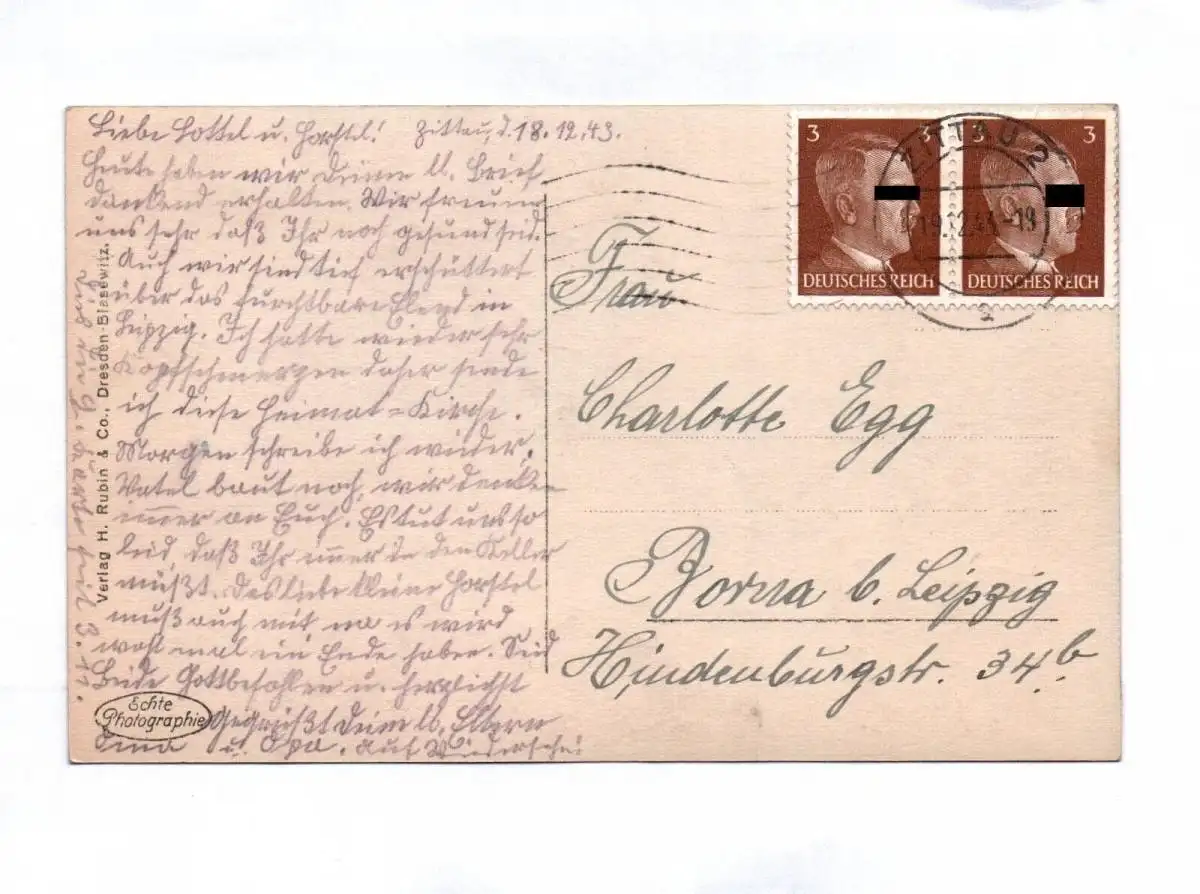 Liebe Lottel u. Horstel! Zittau, d. 18.12.43.
Heute haben wir Deinen lb. Brief
dankend erhalten. Wir freuen
uns sehr daß Ihr noch gesund seid.
Auch wir sind tief erschüttert
über das furchtbare Elend in
Leipzig. Ich hatte wieder sehr
Kopfschmerzen daher sende
ich diese Heimat=Kirche.
Morgen schreibe ich wieder.
Vatel baut noch, wir denken
immer an Euch. Es tut uns so
leid, daß Ihr immer in den Keller
müßt. Das liebe kleine Horstel
muß auch mit na es wird
wohl mal ein Ende haben. Seid
Beide Gottbefohlen u. herzlichst
Gegrüßt Deine lb. Eltern
Oma u. Opa. Auf Wiedersehn!
Verlag H. Rubin & Co., Dresden-Blasewitz.
Echte
Photographie
3 3 3
DEUTSCHES REICH DEUTSCHES REICH
ZITTAU 2
19.12.43-19
a
Frau
Charlotte Egg
Borna b. Leipzig
Hindenburgstr. 34 b.